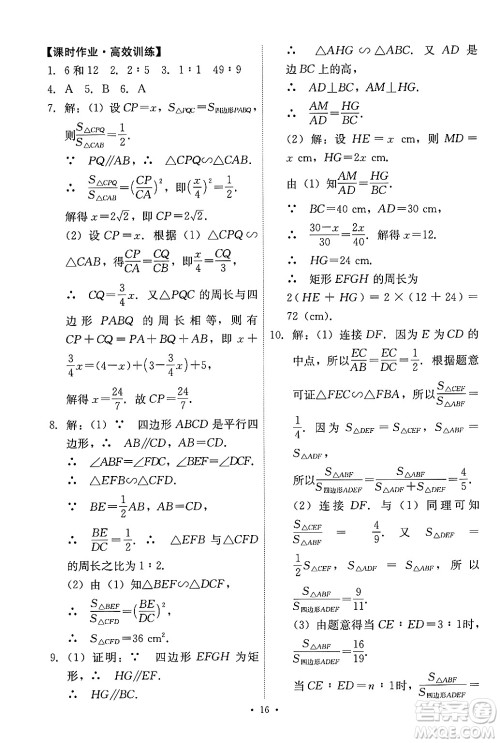 【课时作业·高效训练】
1. 6和12  2. 2∶5  3. 1∶1  49∶9
4. A  5. B  6. A
7. 解：（1）设CP=x，S△PQC=S四边形PABQ，
则S△CPQ/S△CAB=1/2.
∵ PQ∥AB，∴ △CPQ∽△CAB，
∴ S△CPQ/S△CAB=(CP/CA)²，即(x/4)²=1/2.
解得x=2√2，即CP=2√2.
（2）设CP=x. 根据（1）△CPQ∽
△CAB，得CP/CA=CQ/CB，即x/4=CQ/3.
∴ CQ=3/4x. 又△PQC的周长与四
边形PABQ的周长相等，则有
CP+CQ=PA+AB+QB，即x+
3/4x=(4-x)+5+(3-3/4x)，
解得x=24/7. 故CP=24/7.
8. 解：（1）∵ 四边形ABCD是平行四
边形，∴ AB∥CD，AB=CD.
∴ ∠ABF=∠FDC，∠BAF=∠FCD.
∴ △EFB∽△CFD.
∵ BE=1/2AB，AB=CD，
∴ BE/DC=1/2. ∴ △EFB与△CFD
的周长之比为1∶2.
（2）由（1）知△BEF∽△DCF，
∴ S△BEF/S△CFD=(BE/DC)².
∴ S△CFD=36 cm².
9. （1）证明：∵ 四边形EFGH为矩形，
∴ HG∥EF. ∴ HG∥BC.
∴ △AHG∽△ABC. 又AM是
边BC上的高，∴ AM⊥HG.
∴ AM/AD=HG/BC.
（2）解：设HE=x cm，则MD=
x cm，HG=2x cm.
由（1）可知AM/AD=HG/BC.
∵ BC=40 cm，AD=30 cm，
∴ (30-x)/30=2x/40. 解得x=12.
∴ HG=24 cm.
∴ 矩形EFGH的周长为
2(HE+HG)=2×(12+24)=
72(cm).
10. 解：（1）连接DF. ∵ E为CD的
中点，∴ EC/AB=EC/CD=1/2. 根据题意
可证△FEC∽△FBA，所以S△CEF/S△ABF=
1/4. 因为S△DEF=S△CEF，S△ABF=
S△ADF，
所以S△ABF/S四边形ADEF=S△ABF/(S△ADF+S△DEF)=4/5.
（2）连接DF. 与（1）同理可知
S△CEF/S△ABF=4/9，S△DEF/S△ABF=2/9，S△ADF/S△ABF=
所以S△ABF/S四边形ADEF=9/11.
（3）由题意得当CE∶ED=3∶1时，
当CE∶ED=n∶1时，S△ABF/S四边形ADEF=
· 16 ·